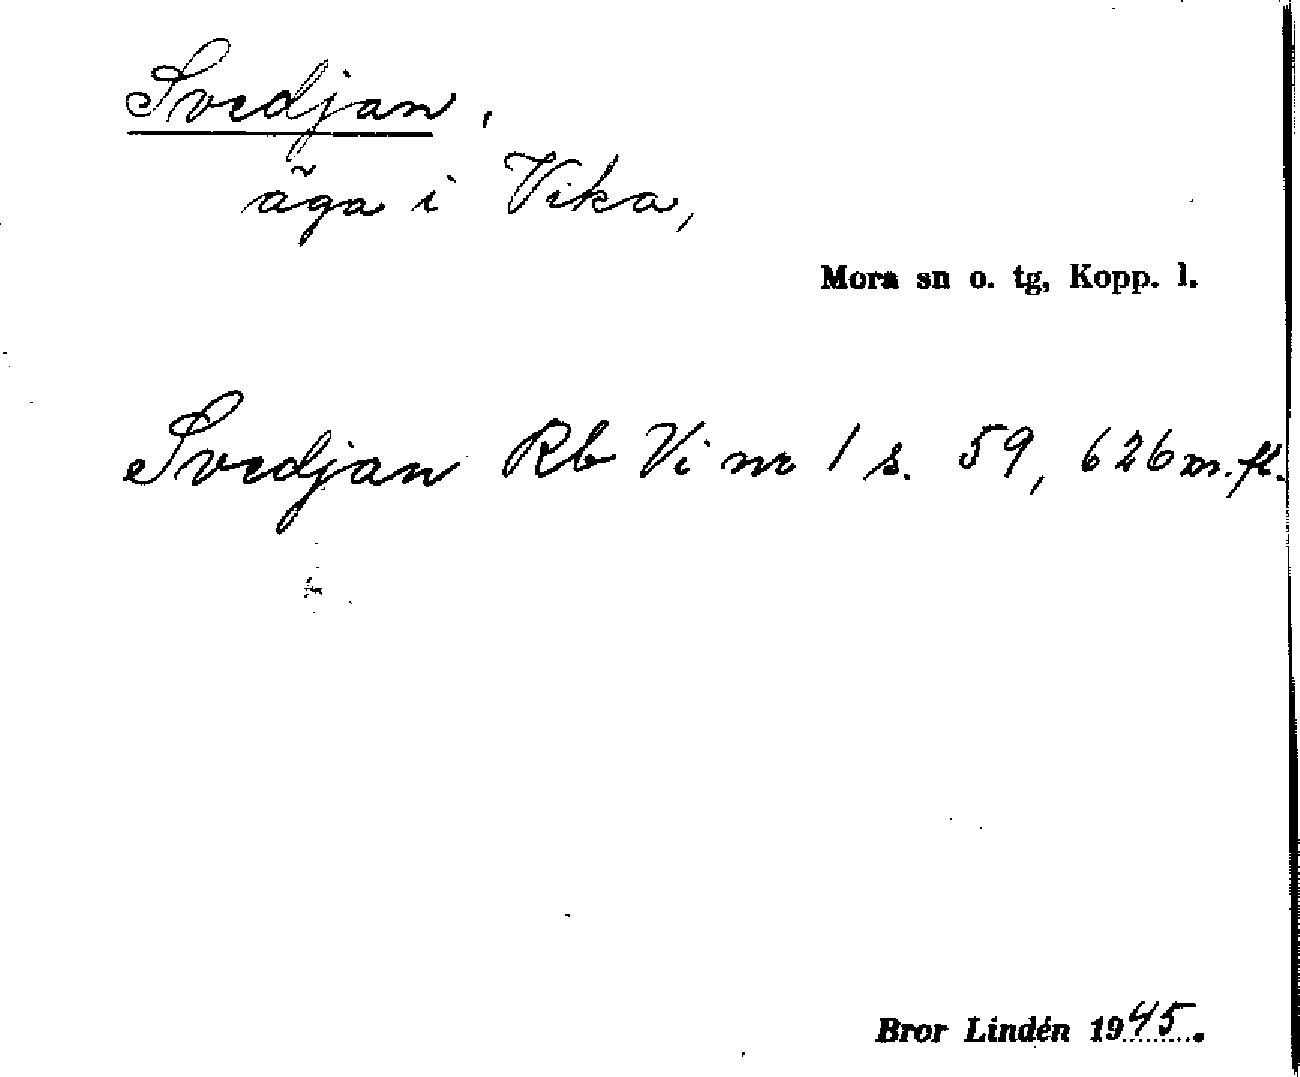 Svedjan,
äga i Vika,
Mora sn o. tg, Kopp. l.
Svedjan Rb Vi nr 1 s. 59, 626 m. fl.
Bror Lindén 1945.